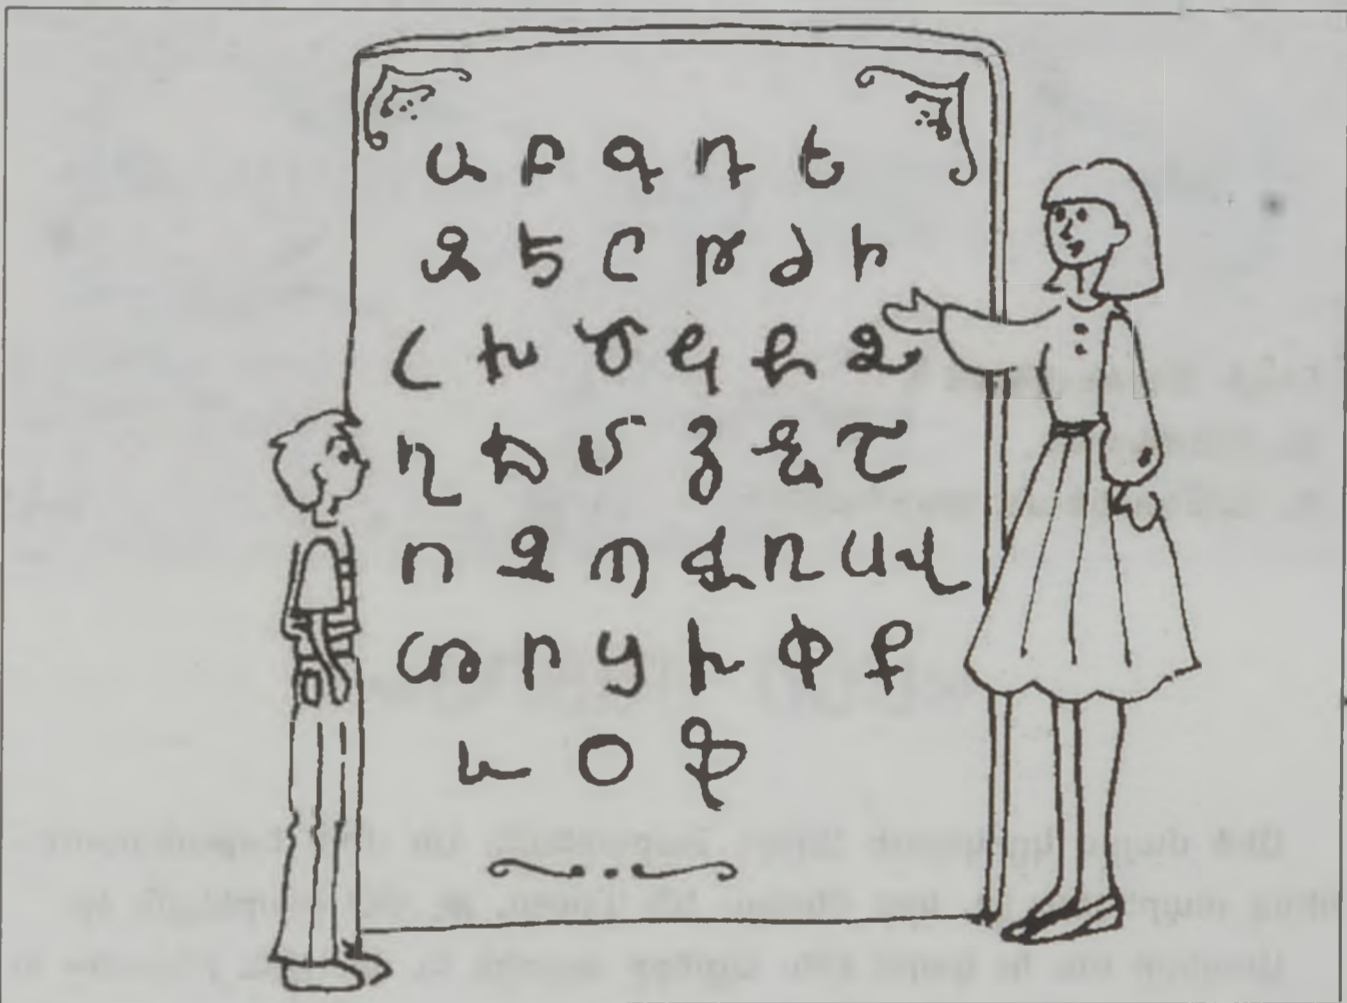 Ա Բ Գ Դ Ե
Զ Է Ը Թ Ժ Ի
Լ Խ Ծ Կ Հ Ձ
Ղ Ճ Մ Յ Ն Շ
Ո Չ Պ Ջ Ռ Ս Վ
Տ Ր Ց Ւ Փ Ք
և Օ Ֆ